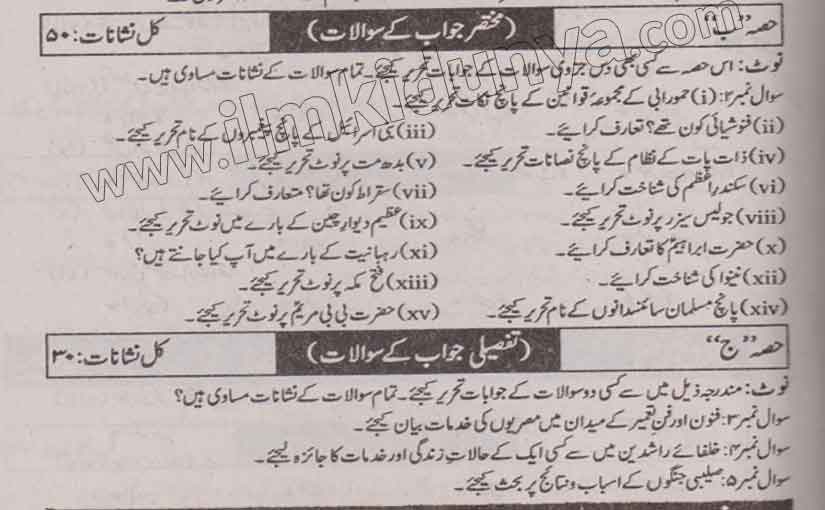 حصہ "ب" (مختصر جواب کے سوالات) کل نشانات: ۵۰
نوٹ: اس حصہ سے کسی بھی دس جزوی سوالات کے جوابات تحریر کیجئے۔ تمام سوالات کے نشانات مساوی ہیں۔
سوال نمبر۲: (i) حمورابی کے مجموعۂ قوانین کے پانچ نکات تحریر کیجئے۔
(ii) فنوشیائی کون تھے؟ تعارف کرائیے۔ (iii) بنی اسرائیل کے پانچ پیغمبروں کے نام تحریر کیجئے۔
(iv) ذات پات کے نظام کے پانچ نقصانات تحریر کیجئے۔ (v) بدھ مت پر نوٹ تحریر کیجئے۔
(vi) سکندر اعظم کی شناخت کرائیے۔ (vii) سقراط کون تھا؟ متعارف کرائیے۔
(viii) جولیس سیزر پر نوٹ تحریر کیجئے۔ (ix) عظیم دیوار چین کے بارے میں نوٹ تحریر کیجئے۔
(x) حضرت ابراہیمؑ کا تعارف کرائیے۔ (xi) رہبانیت کے بارے میں آپ کیا جانتے ہیں؟
(xii) نینوا کی شناخت کرائیے۔ (xiii) فتح مکہ پر نوٹ تحریر کیجئے۔
(xiv) پانچ مسلمان سائنسدانوں کے نام تحریر کیجئے۔ (xv) حضرت بی بی مریمؑ پر نوٹ تحریر کیجئے۔
حصہ "ج" (تفصیلی جواب کے سوالات) کل نشانات: ۳۰
نوٹ: مندرجہ ذیل میں سے کسی دو سوالات کے جوابات تحریر کیجئے۔ تمام سوالات کے نشانات مساوی ہیں؟
سوال نمبر۳: فنون اور فن تعمیر کے میدان میں مصریوں کی خدمات بیان کیجئے۔
سوال نمبر۴: خلفائے راشدین میں سے کسی ایک کے حالاتِ زندگی اور خدمات کا جائزہ لیجئے۔
سوال نمبر۵: صلیبی جنگوں کے اسباب و نتائج پر بحث کیجئے۔
www.ilmkidunya.com